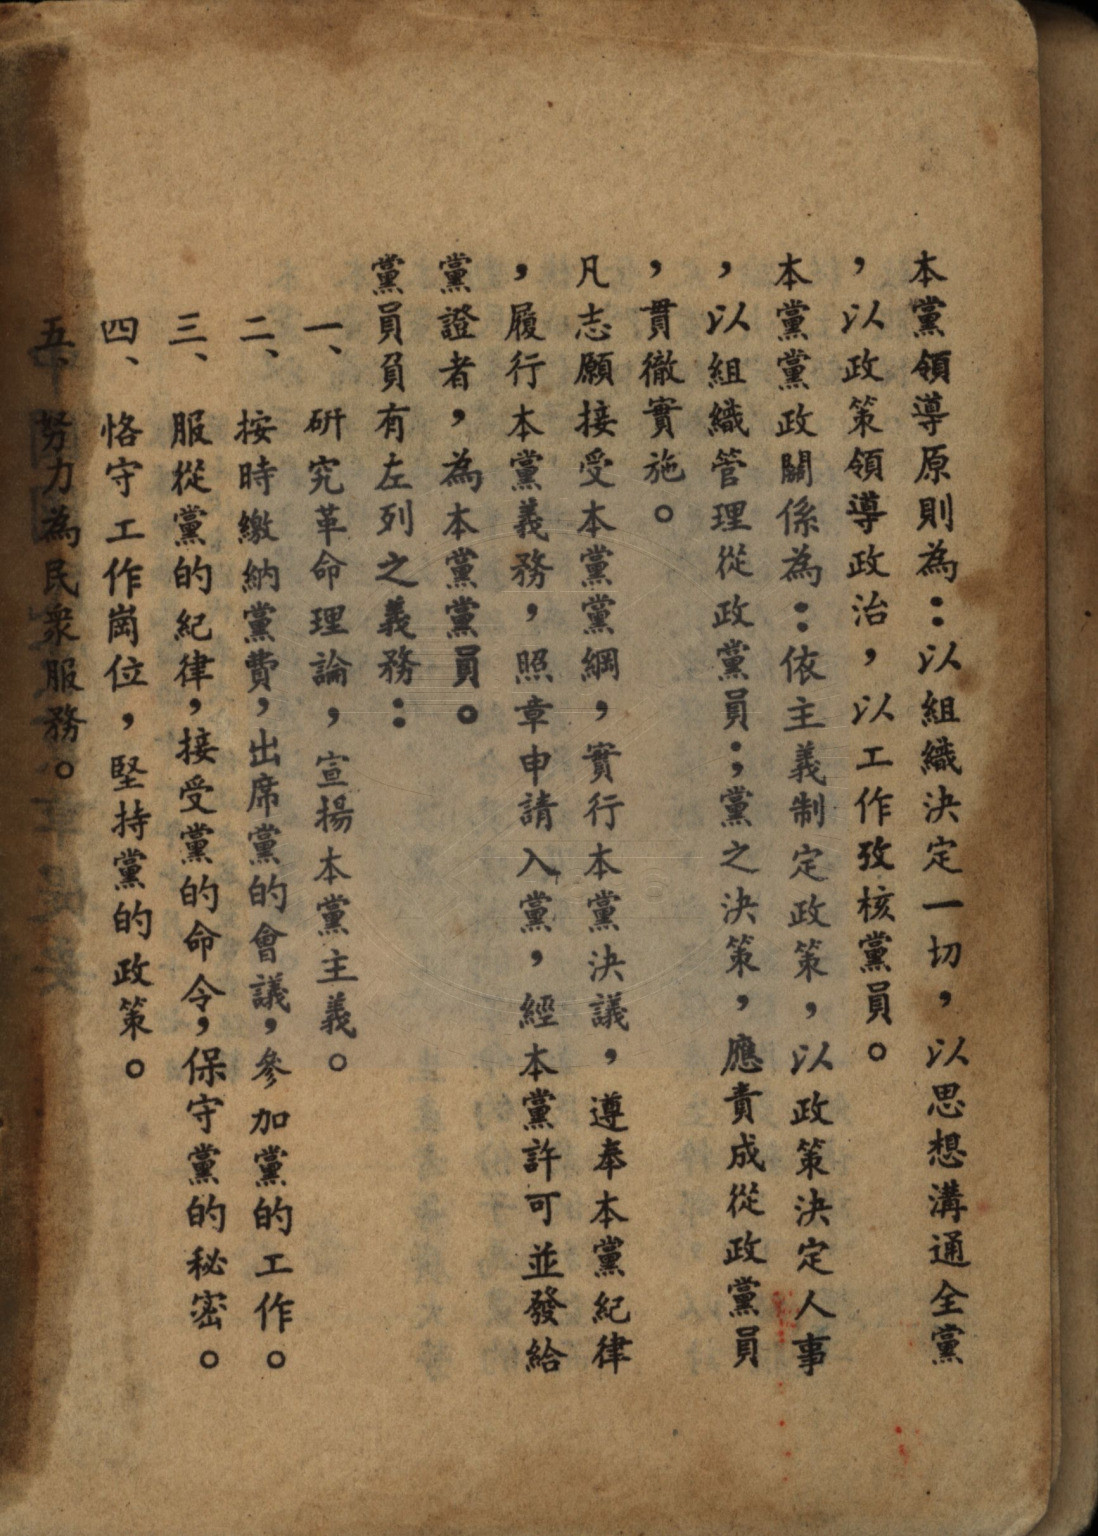 本黨領導原則為：以組織決定一切，以思想溝通全黨
，以政策領導政治，以工作攷核黨員。
本黨黨政關係為：依主義制定政策，以政策決定人事
，以組織管理從政黨員；黨之決策，應責成從政黨員
，貫徹實施。
凡志願接受本黨黨綱，實行本黨決議，遵奉本黨紀律
，履行本黨義務，照章申請入黨，經本黨許可並發給
黨證者，為本黨黨員。
黨員負有左列之義務：
一、研究革命理論，宣揚本黨主義。
二、按時繳納黨費，出席黨的會議，參加黨的工作。
三、服從黨的紀律，接受黨的命令，保守黨的秘密。
四、恪守工作崗位，堅持黨的政策。
五、努力為民衆服務。